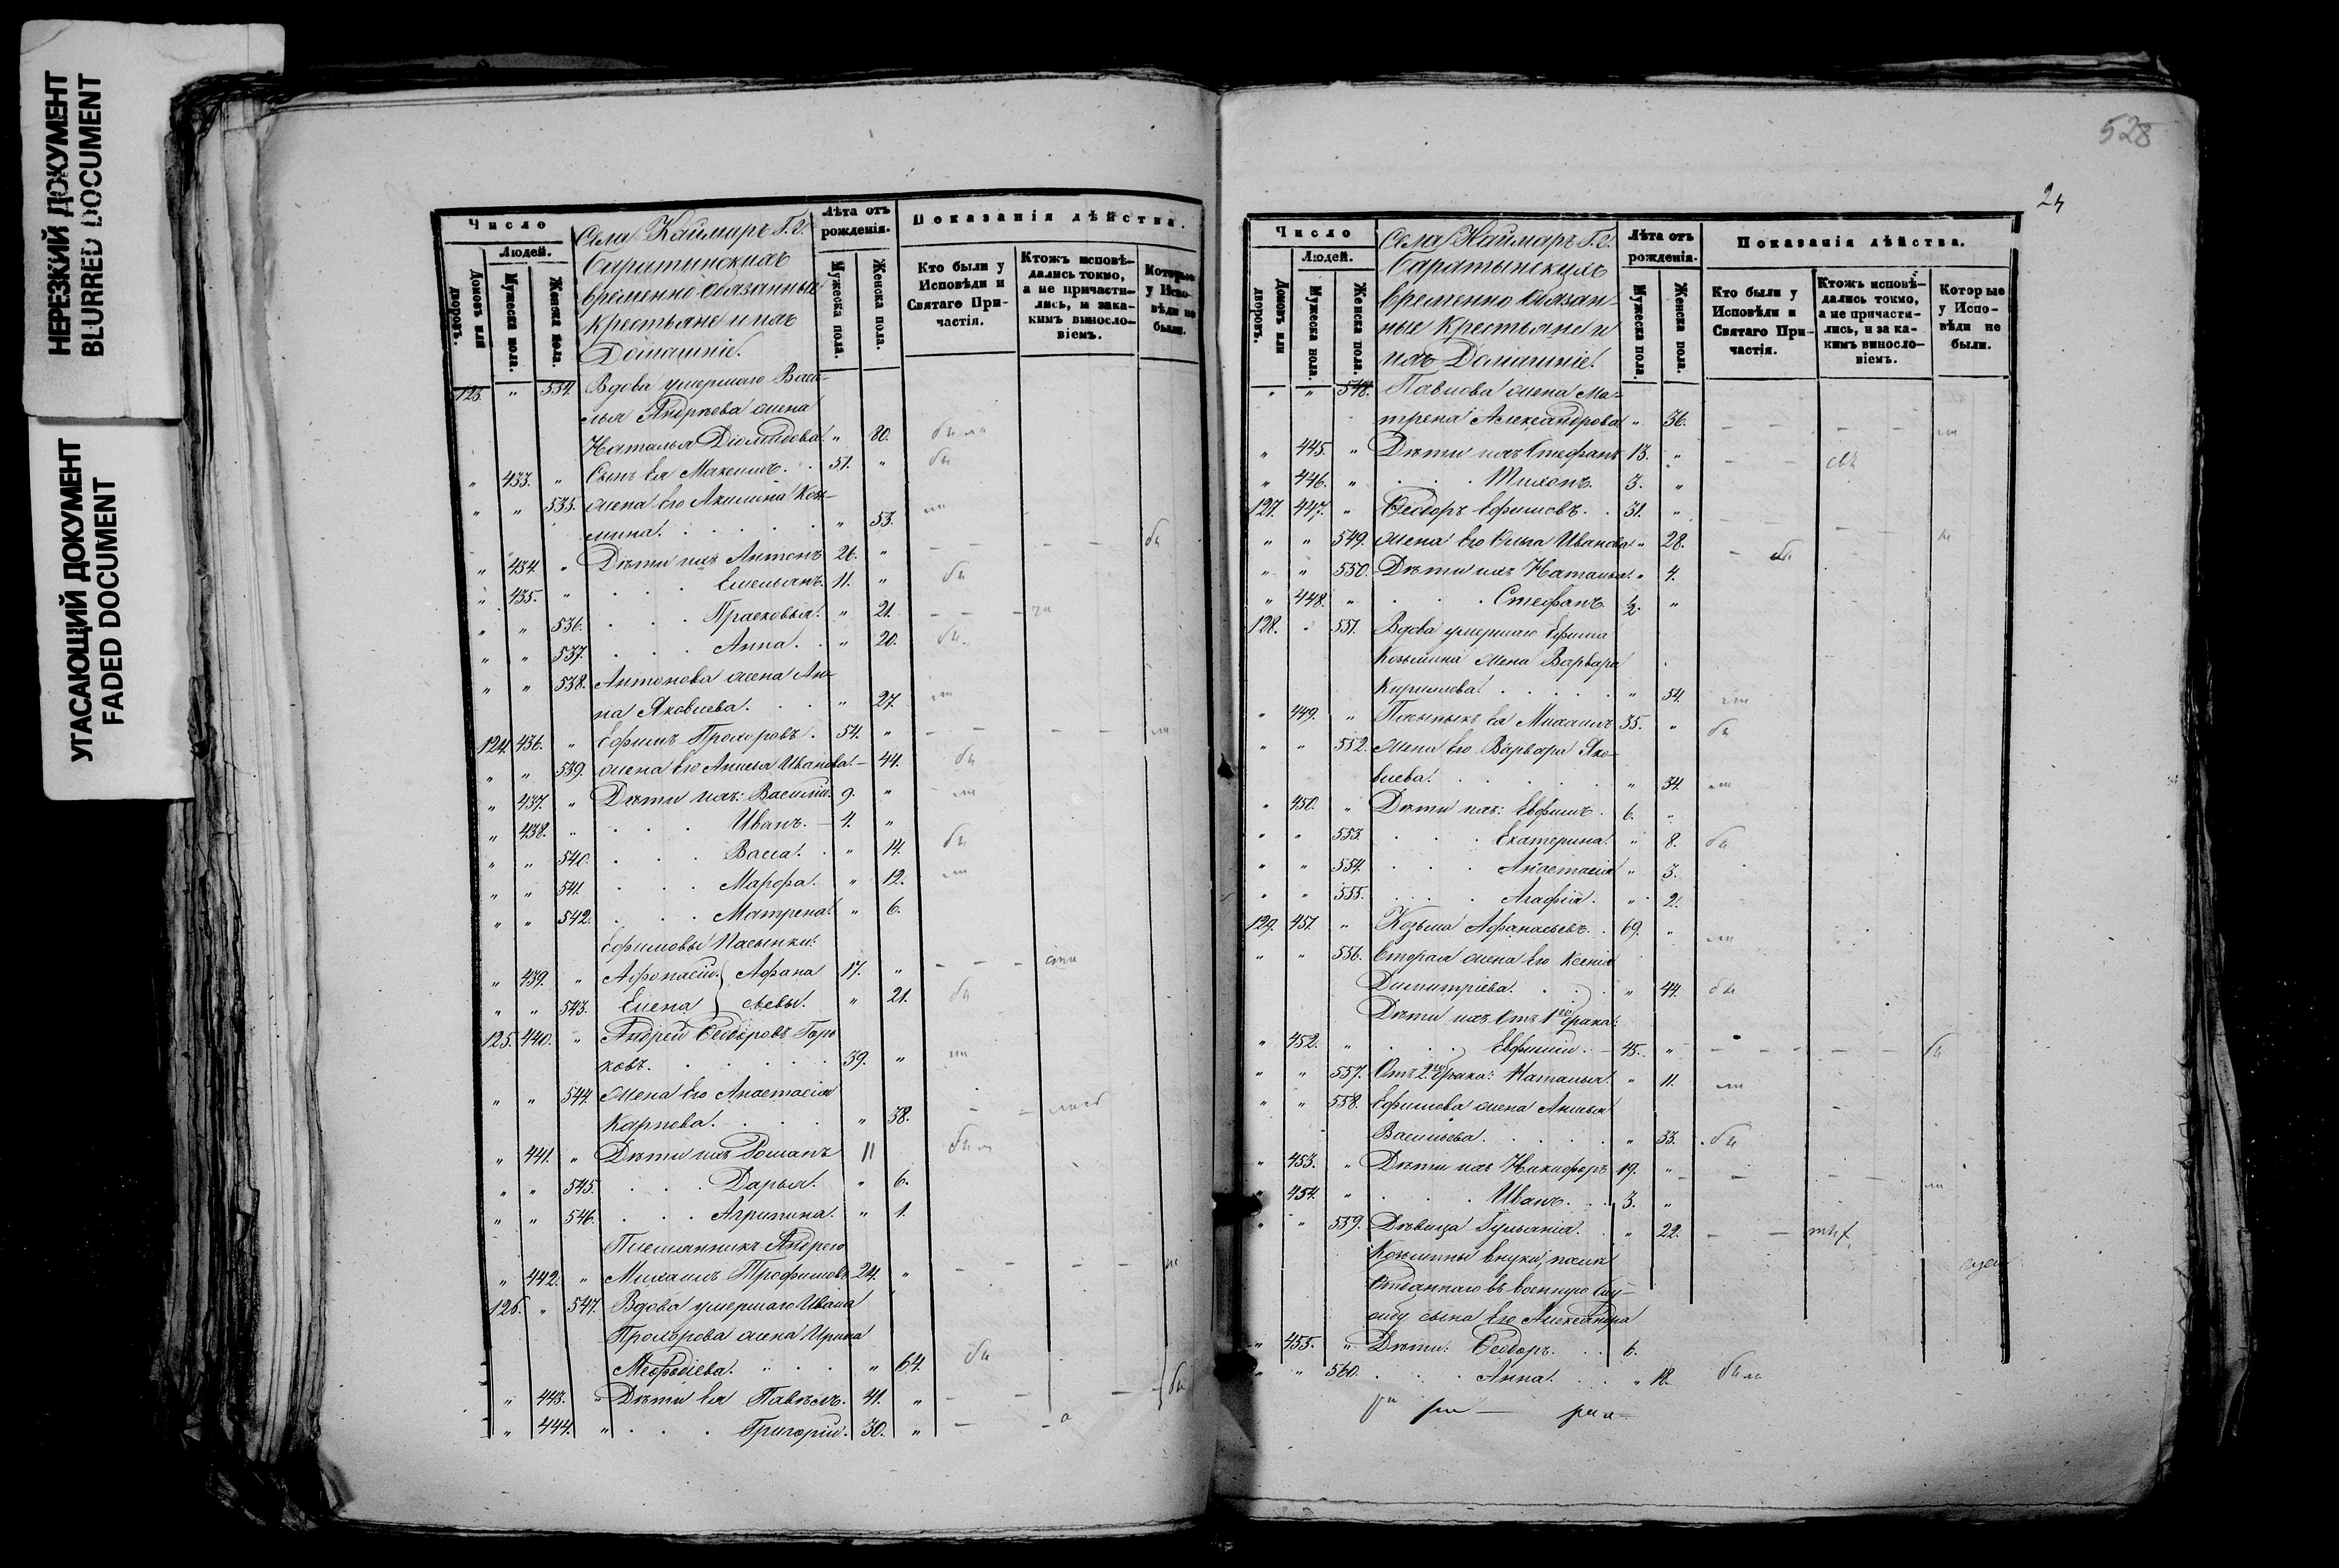 НЕРЕЗКИЙ ДОКУМЕНТ
BLURRED DOCUMENT
УГАСАЮЩИЙ ДОКУМЕНТ
FADED DOCUMENT
Число
Людей.
Домовъ или дворовъ.
Мужеска пола.
Женска пола.
Села Каймаръ Г.
временно обязанные
Крестьяне и ихъ
Домашніе.
Лѣта отъ рожденія.
Мужеска пола.
Женска пола.
Показанія дѣйства.
Кто были у Исповѣди и Святаго Причастія.
Ктожъ исповѣдались токмо, а не причастились, и за какимъ винословіемъ.
Которые у Исповѣди не были.
123. " 534. Вдова умершаго Васи-
лья Андреева жена
Наталья Діомидова. " 80. была
" 433. " Сынъ ея Максимъ. 51. " бы
" " 535. жена его Акилина Козь-
мина. " 53.
" 434. " Дѣти ихъ Антонъ 26. " бы
" 435. " Емельянъ. 11. " бы
" " 536. Прасковья. " 21.
" " 537. Анна. " 20. бы
" " 538. Антонова жена Ан-
на Яковлева. " 27.
124. 436. " Ефимъ Прохоровъ. 54. "
" " 539. жена его Анисья Иванова. 44. бы
" 437. " Дѣти ихъ: Василій. 9. "
" 438. " Иванъ. 4. "
" " 540. Васса. " 14. бы
" " 541. Марфа. " 12.
" " 542. Матрена. " 6.
Ефимовы пасынки:
" 439. " Афонасій } Афана 17. "
" " 543. Елена } сьевы. " 21. бы
125. 440. " Андрей Ѳедоровъ Горо
ховъ. 39. "
" " 544. Жена его Анастасія
Карпова. " 38.
" 441. " Дѣти ихъ Романъ 11
" " 545. Дарья. " 6.
" " 546. Агрипина. " 1.
Племянникъ Андрея
" 442. " Михаилъ Трофимовъ 24. "
126. " 547. Вдова умершаго Ивана
Прохорова жена Ирина
Меѳодіева. " 64. бы
" 443. " Дѣти ея Павелъ. 41. " бы
" 444. " Григорій. 30. "
528
24
Число
Людей.
Домовъ или дворовъ.
Мужеска пола.
Женска пола.
Села Каймаръ Г.
временно обязан-
ные Крестьяне и
ихъ Домашніе.
Лѣта отъ рожденія.
Мужеска пола.
Женска пола.
Показанія дѣйства.
Кто были у Исповѣди и Святаго Причастія.
Ктожъ исповѣдались токмо, а не причастились, и за какимъ винословіемъ.
Которые у Исповѣди не были.
" " 548. Павлова жена Ма-
трена Александрова " 36.
" 445. " Дѣти ихъ Стефанъ 13. "
" 446. " Тихонъ. 3. "
127. 447. " Ѳедоръ Ефимовъ. 31. "
" " 549. жена его Иванова " 28. бы
" " 550. Дѣти ихъ Наталья. " 4.
" 448. " Стефанъ. ½. "
128. " 551. Вдова умершаго Ефима
Козьмина жена Варвара
Кирилова. " 54.
" 449. " Пасынокъ ея Михаилъ 35. " бы
" " 552. Жена его Варвара Яко-
влева. " 34.
" 450. " Дѣти ихъ: Евфимъ. 6. "
" " 553. Екатерина. " 8. бы
" " 554. Анастасія " 3.
" " 555. Агафія. " 2.
129. 451. " Козьма Афанасьевъ. 69. "
" " 556. Вторая жена его Ксенія
Димитріева. " 44. бы
Дѣти ихъ отъ 1го брака:
" 452. " Евфимій. 45. " бы
" " 557. Отъ 2го брака: Наталья. " 11.
" " 558. Ефимова жена
Васильева. " 33. бы
" 453. " Дѣти ихъ Никифоръ 19. "
" 454. " Иванъ. 3. "
" " 559. Дѣвица Гульянія. " 22.
Козьмины внуки,
отданнаго въ военную слу-
жбу сына его Александра
" 455. " Дѣти: Ѳедоръ. 6.
" " 560. Анна. " 18. была